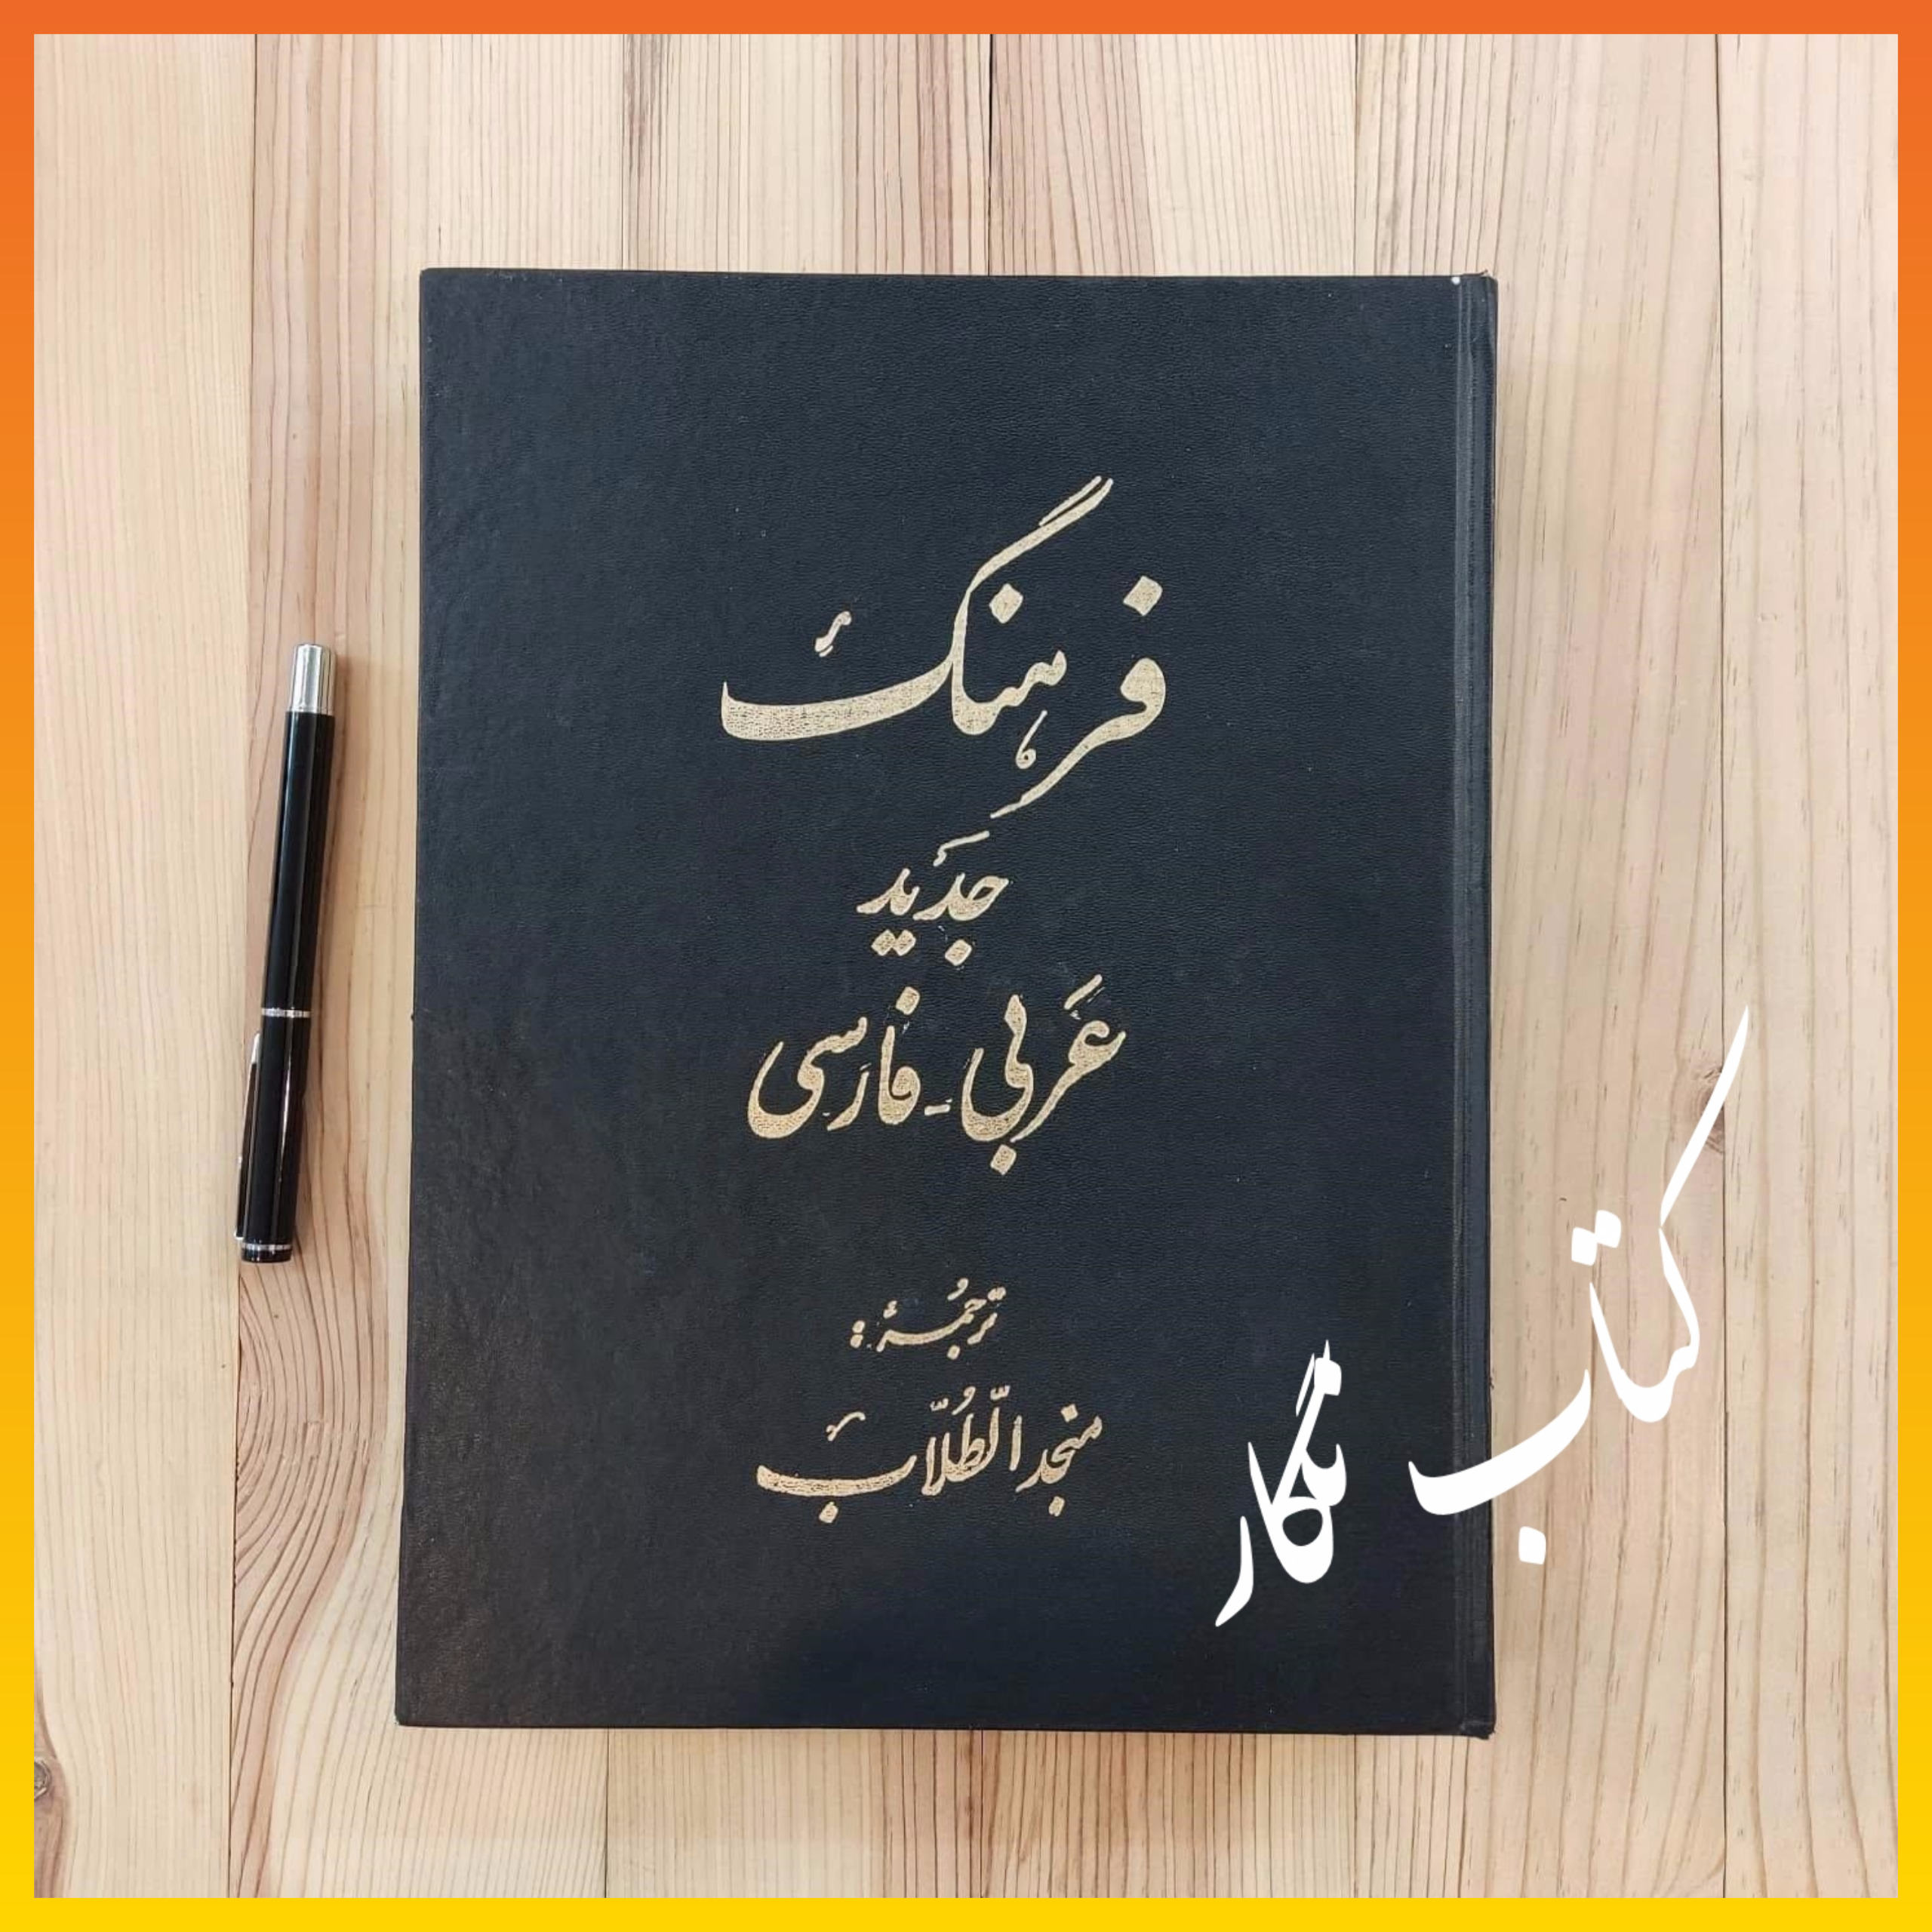 فرهنگ
جدید
عَربی - فارسی
ترجُمهٔ :
منجد الطُلّاب
کتاب نگار